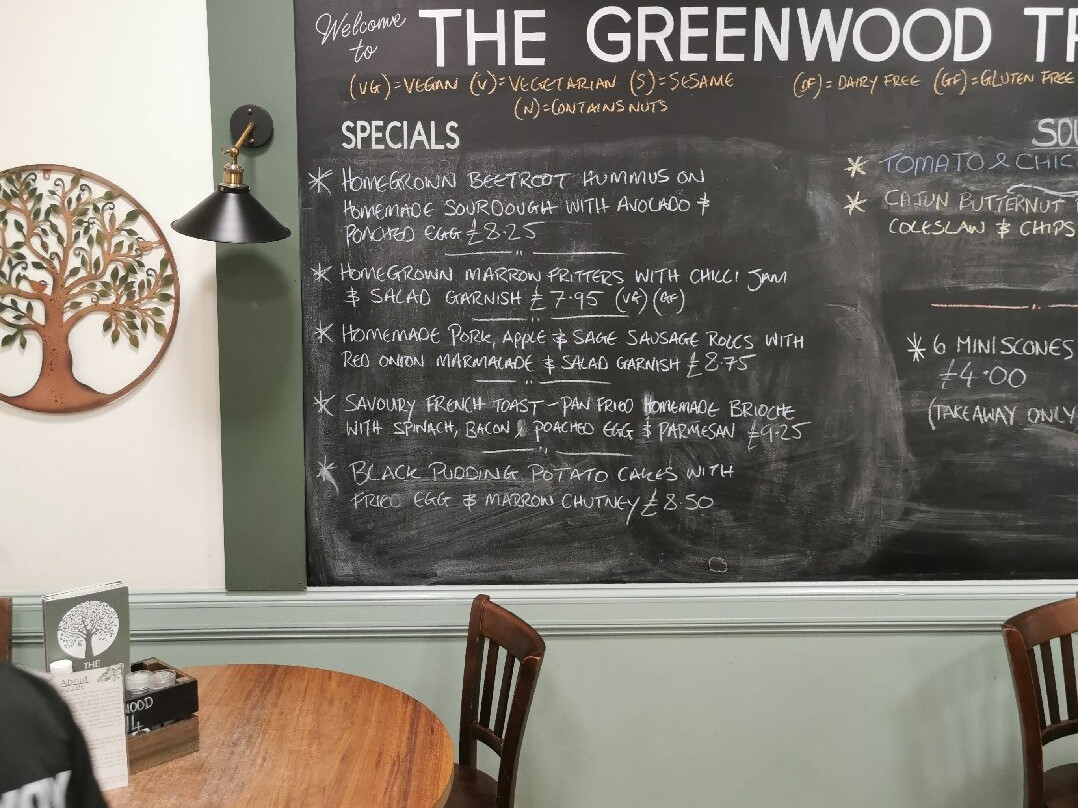 Welcome
to
THE GREENWOOD
(VG)=VEGAN (V)=VEGETARIAN (S)=SESAME (DF)=DAIRY FREE (GF)=GLUTEN FREE
(N)=CONTAINS NUTS
SPECIALS
* HOMEGROWN BEETROOT HUMMUS ON
HOMEMADE SOURDOUGH WITH AVOCADO &
POACHED EGG £8.25
* HOMEGROWN MARROW FRITTERS WITH CHILLI JAM
& SALAD GARNISH £7.95 (VG) (GF)
* HOMEMADE PORK, APPLE & SAGE SAUSAGE ROLLS WITH
RED ONION MARMALADE & SALAD GARNISH £8.75
* SAVOURY FRENCH TOAST - PAN FRIED HOMEMADE BRIOCHE
WITH SPINACH, BACON & POACHED EGG & PARMESAN £9.25
* BLACK PUDDING POTATO CAKES WITH
FRIED EGG & MARROW CHUTNEY £8.50
SOU
* TOMATO & CHIC
* CAJUN BUTTERNUT
COLESLAW & CHIPS
* 6 MINI SCONES
£4.00
(TAKEAWAY ONLY
THE
About
OOD